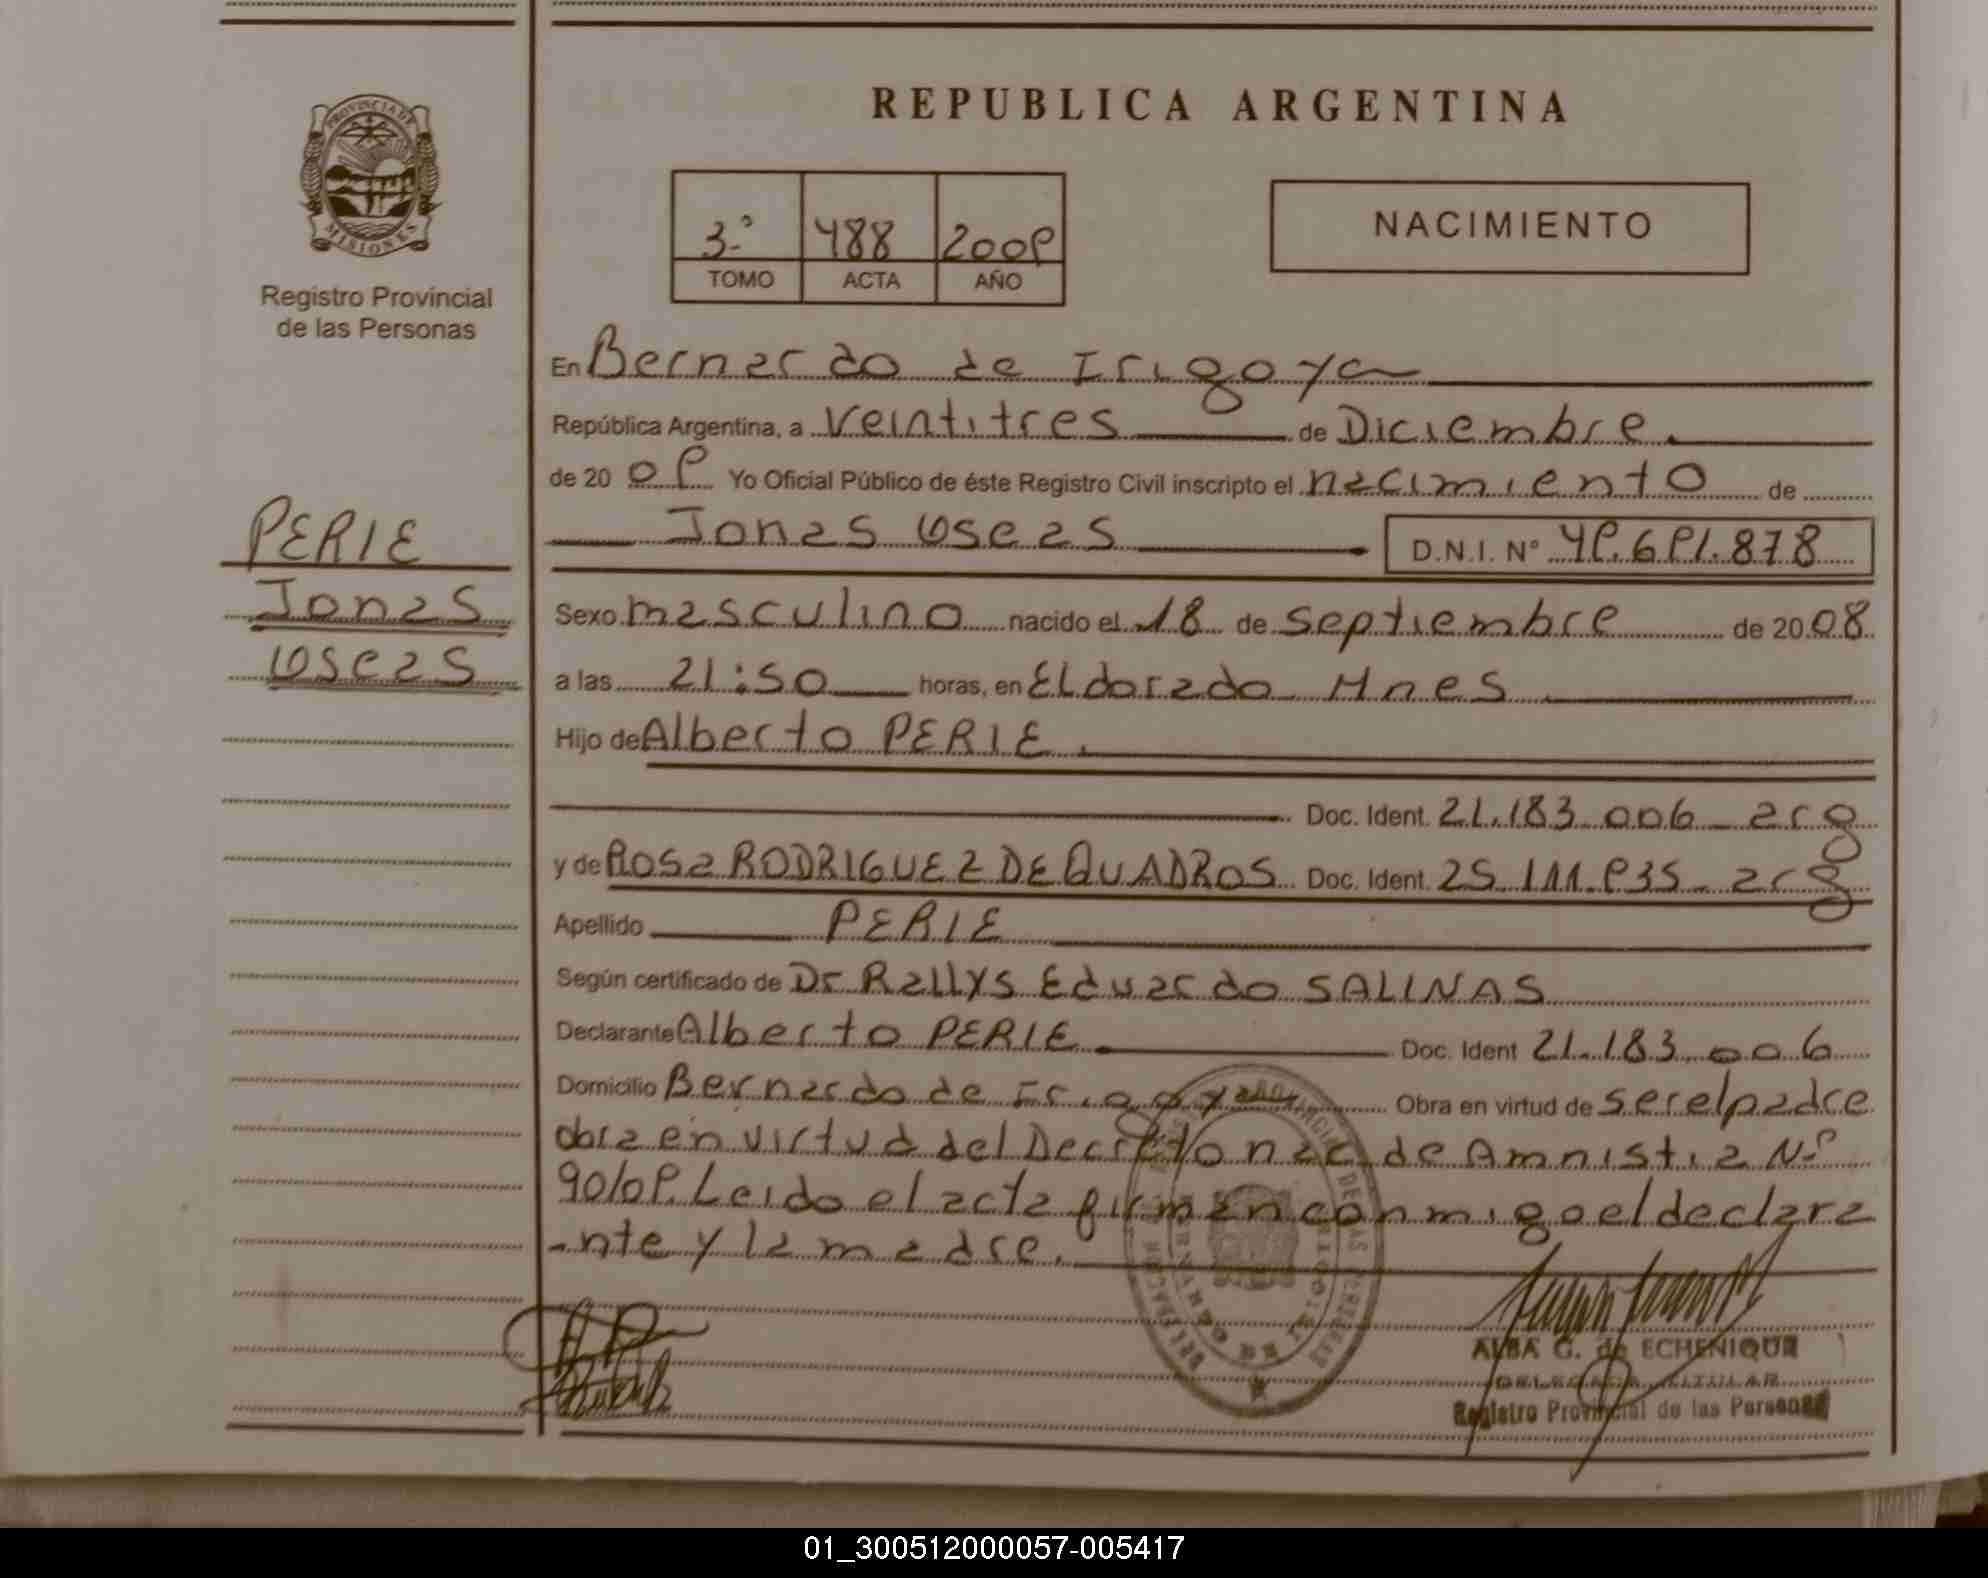 REPUBLICA ARGENTINA
PROVINCIA DE
MISIONES
Registro Provincial
de las Personas
3º 488 2009
TOMO ACTA AÑO
NACIMIENTO
En Bernardo de Irigoyen
República Argentina, a Veintitres de Diciembre
de 20 09 Yo Oficial Público de éste Registro Civil inscripto el nacimiento de
Jonas Oseas D.N.I. Nº 49.691.878
PERIE
Jonas
Oseas
Sexo masculino nacido el 18 de septiembre de 20 08
a las 21:50 horas, en Eldorado Mnes
Hijo de Alberto PERIE.
Doc. Ident. 21.183.006 - arg
y de Rosa RODRIGUEZ DE QUADROS Doc. Ident. 25.111.935 - arg
Apellido PERIE
Según certificado de Dr Rallys Eduardo SALINAS
Declarante Alberto PERIE Doc. Ident 21.183.006
Domicilio Bernardo de Irigoyen Obra en virtud de ser el padre
obra en virtud del Decreto nac de Amnistia Nº
90/09. Leido el acta firman conmigo el declara
-nte y la madre.
ALBA G. de ECHENIQUE
DELEGADA TITULAR
Registro Provincial de las Personas
01_300512000057-005417